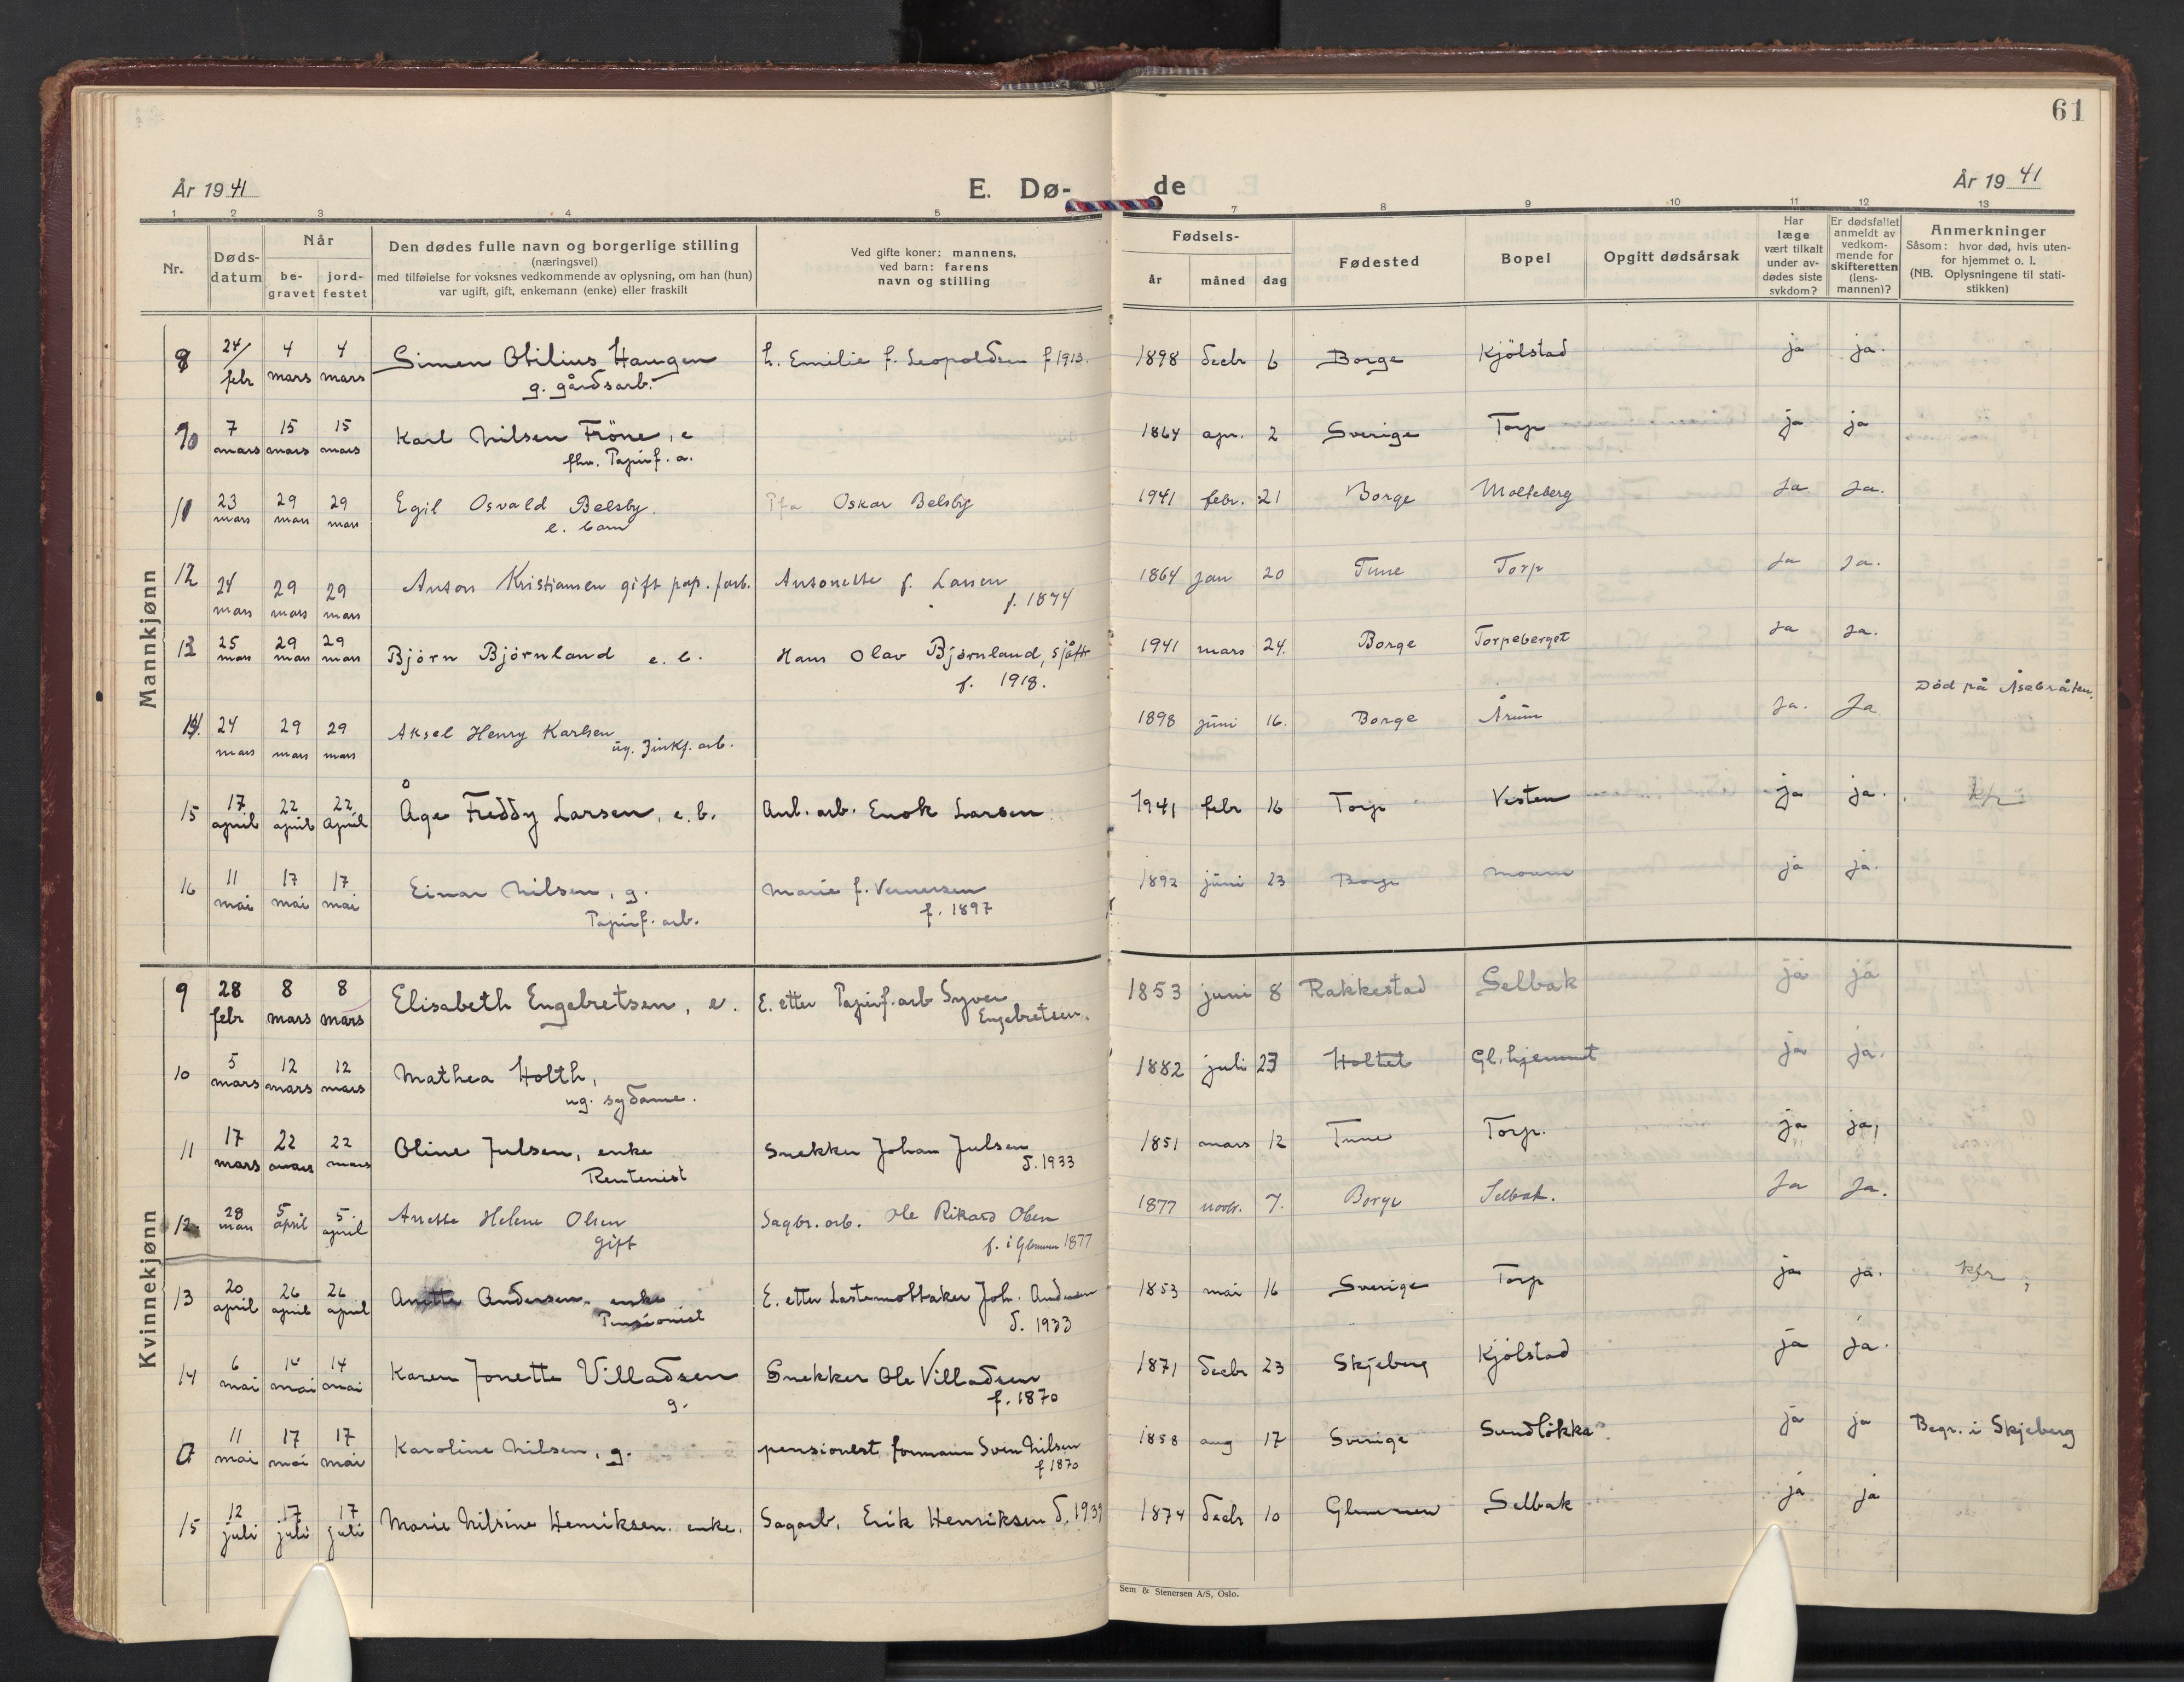 61
År 1941
E. Dø-
de
År 1941
1 2 3 4 5
7 8 9 10 11 12 13
Nr.
Døds-
datum
Når
be-
gravet
jord-
festet
Den dødes fulle navn og borgerlige stilling
(næringsvei)
med tilføielse for voksnes vedkommende av oplysning, om han (hun)
var ugift, gift, enkemann (enke) eller fraskilt
Ved gifte koner: mannens,
ved barn: farens
navn og stilling
Fødsels-
år måned dag
Fødested
Bopel
Opgitt dødsårsak
Har
læge
vært tilkalt
under av-
dødes siste
sykdom?
Er dødsfallet
anmeldt av
vedkom-
mende for
skifteretten
(lens-
mannen)?
Anmerkninger
Såsom: hvor død, hvis uten-
for hjemmet o. l.
(NB. Oplysningene til stati-
stikken)
Mannkjønn
24/ 4 4
febr mars mars
Simen Otilius Haugen
g. gårdsarb.
h. Emilie f. Leopoldsen f 1913.
1898 decbr 6 Borge Kjölstad ja ja.
10 7 15 15
mars mars mars
Karl Nilsen Fröne, e
fhv. Papirf. a.
1864 apr. 2 Sverige Torp ja ja
11 23 29 29
mars mars mars
Egil Osvald Belsby.
e. barn
Oskar Belsby
1941 febr. 21 Borge Molteberg Ja Ja.
12 24 29 29
mars mars mars
Anton Kristiansen gift pap.farb.
Antonette f. Larsen
f. 1874
1864 jan 20 Tune Torp Ja Ja.
13 25 29 29
mars mars mars
Björn Björnland e. b.
Hans Olav Björnland, sjåfør
f. 1918.
1941 mars 24. Borge Torpeberget Ja Ja.
14. 24 29 29
mars mars mars
Aksel Henry Karlsen
ug. Zinkf. arb.
1898 juni 16. Borge Årum Ja. Ja
Död på Åsebråten.
15 17 22 22
april april April
Åge Freddy Larsen, e. b.
Anl. arb. Enok Larsen
1941 febr 16 Torp Vesten ja ja. kfr
16 11 17 17
mai mai mai
Einar Nilsen, g.
Papirf. arb.
Marie f. Vernersen
f. 1897
1892 juni 23 Borge Moum ja ja.
Kvinnekjønn
9 28 8 8
febr mars mars
Elisabeth Engebretsen, e.
E. etter Papirf. arb Syver
Engebretsen.
1853 juni 8 Rakkestad Selbak ja ja
10 5 12 12
mars mars mars
Mathea Holth,
ug. sydame.
1882 juli 23 Holtet Gl. hjemmet ja ja.
11 17 22 22
mars mars mars
Oline Julsen, enke
Rentenist
Snekker Johan Julsen
d. 1933
1851 mars 12 Tune Torp. ja ja,
12 28 5 5
mars april april
Anette Helene Olsen
gift
Sagbr. arb. Ole Rikard Olsen
f. i Glemmen 1877
1877 novbr. 7. Borge Selbak. Ja Ja.
13 20 26 26
april april april
Anette Andersen, enke
Pensionist
E. etter Lastemottaker Joh. Andersen
d. 1933
1853 mai 16 Sverige Torp ja ja. kfr
14 6 14 14
mai mai mai
Karen Jonette Villadsen
g.
Snekker Ole Villadsen
f. 1870
1871 decbr 23 Skjeberg Kjölstad ja ja.
0 11 17 17
mai mai mai
Karoline Nilsen, g.
pensionert formann Sven Nilsen
f 1870
1858 aug 17 Sverige Sundlökka ja ja Begr. i Skjeberg
15 12 17 17
juli juli juli
Marie Nilsine Henriksen. enke.
Sagarb. Erik Henriksen d. 1939
1874 decbr 10 Glemmen Selbak ja ja
Sem & Stenersen A/S, Oslo.